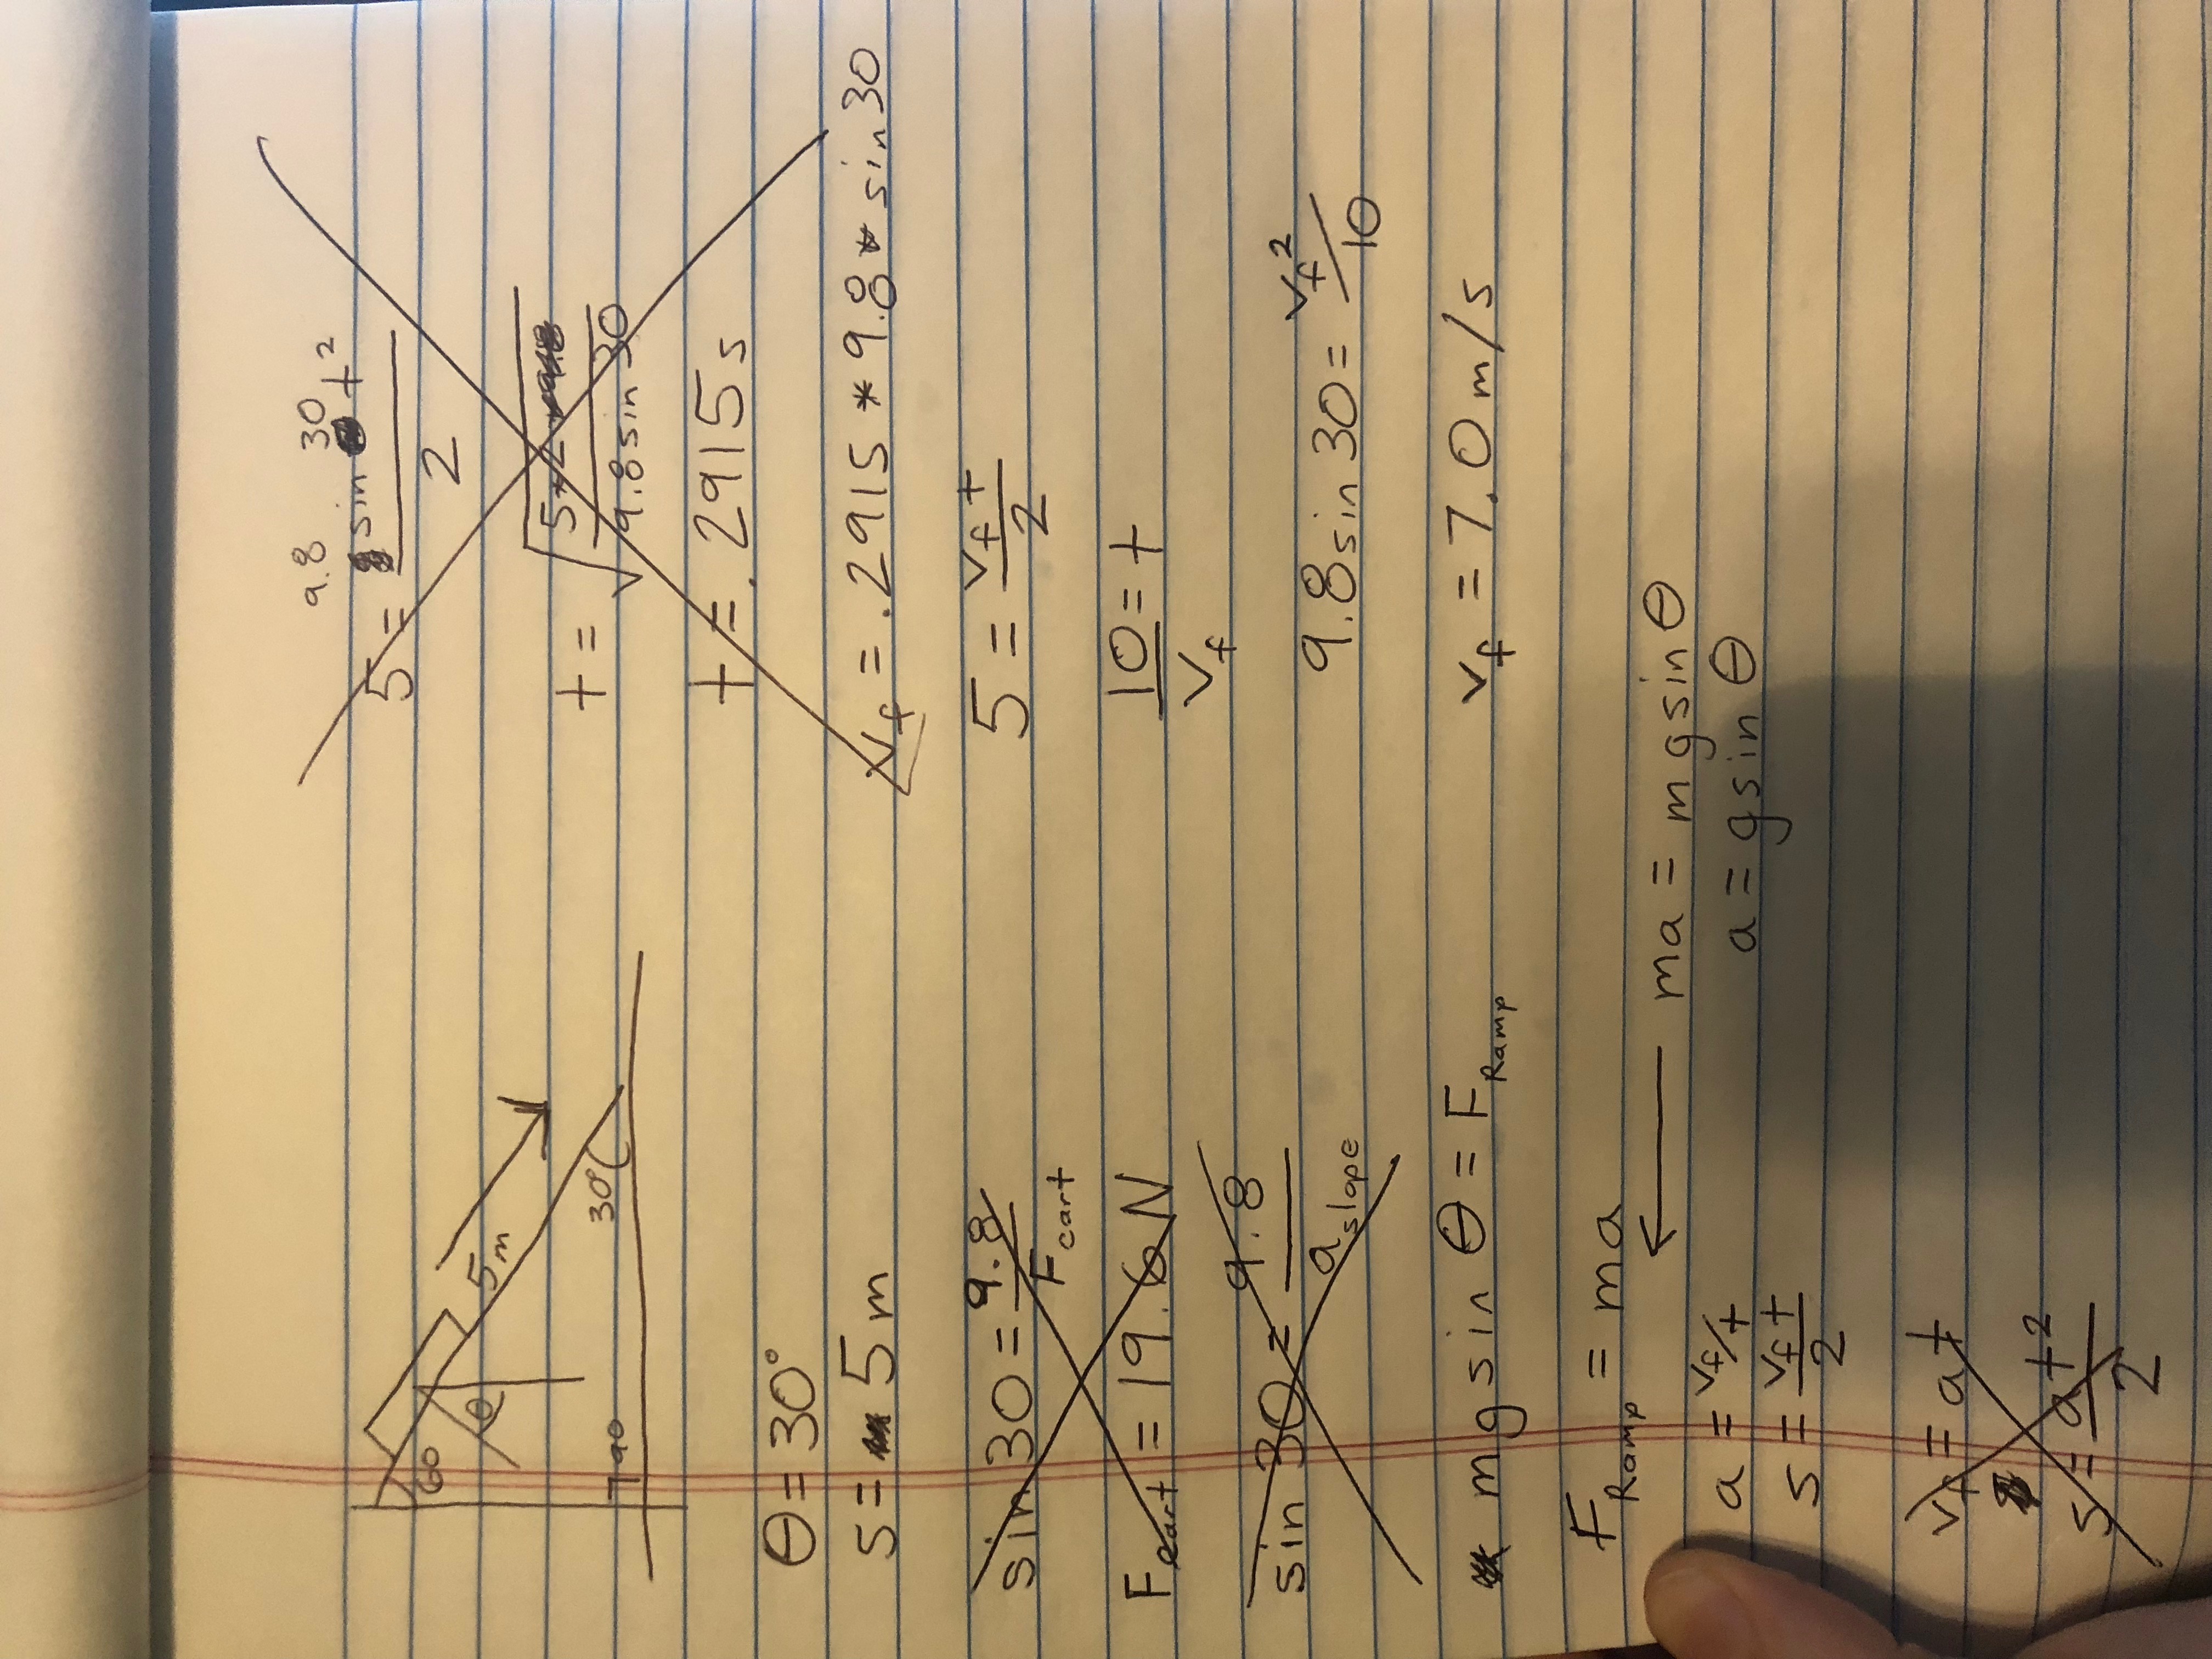 60
θ
5m
30°
90
θ = 30°
s = 5m
sin 30 = 9.8 / F cart
F cart = 19.6 N
sin 30 = 9.8 / a slope
mg sin θ = F Ramp
F Ramp = ma
ma = mg sin θ
a = g sin θ
a = vf/t
s = vf t / 2
vf = at
s = at² / 2
9.8 30
5 = sin t² / 2
t = √(5*2 / 9.8 sin 30)
t = .2915 s
vf = .2915 * 9.8 * sin 30
5 = vf t / 2
10 / vf = t
9.8 sin 30 = vf² / 10
vf = 7.0 m/s